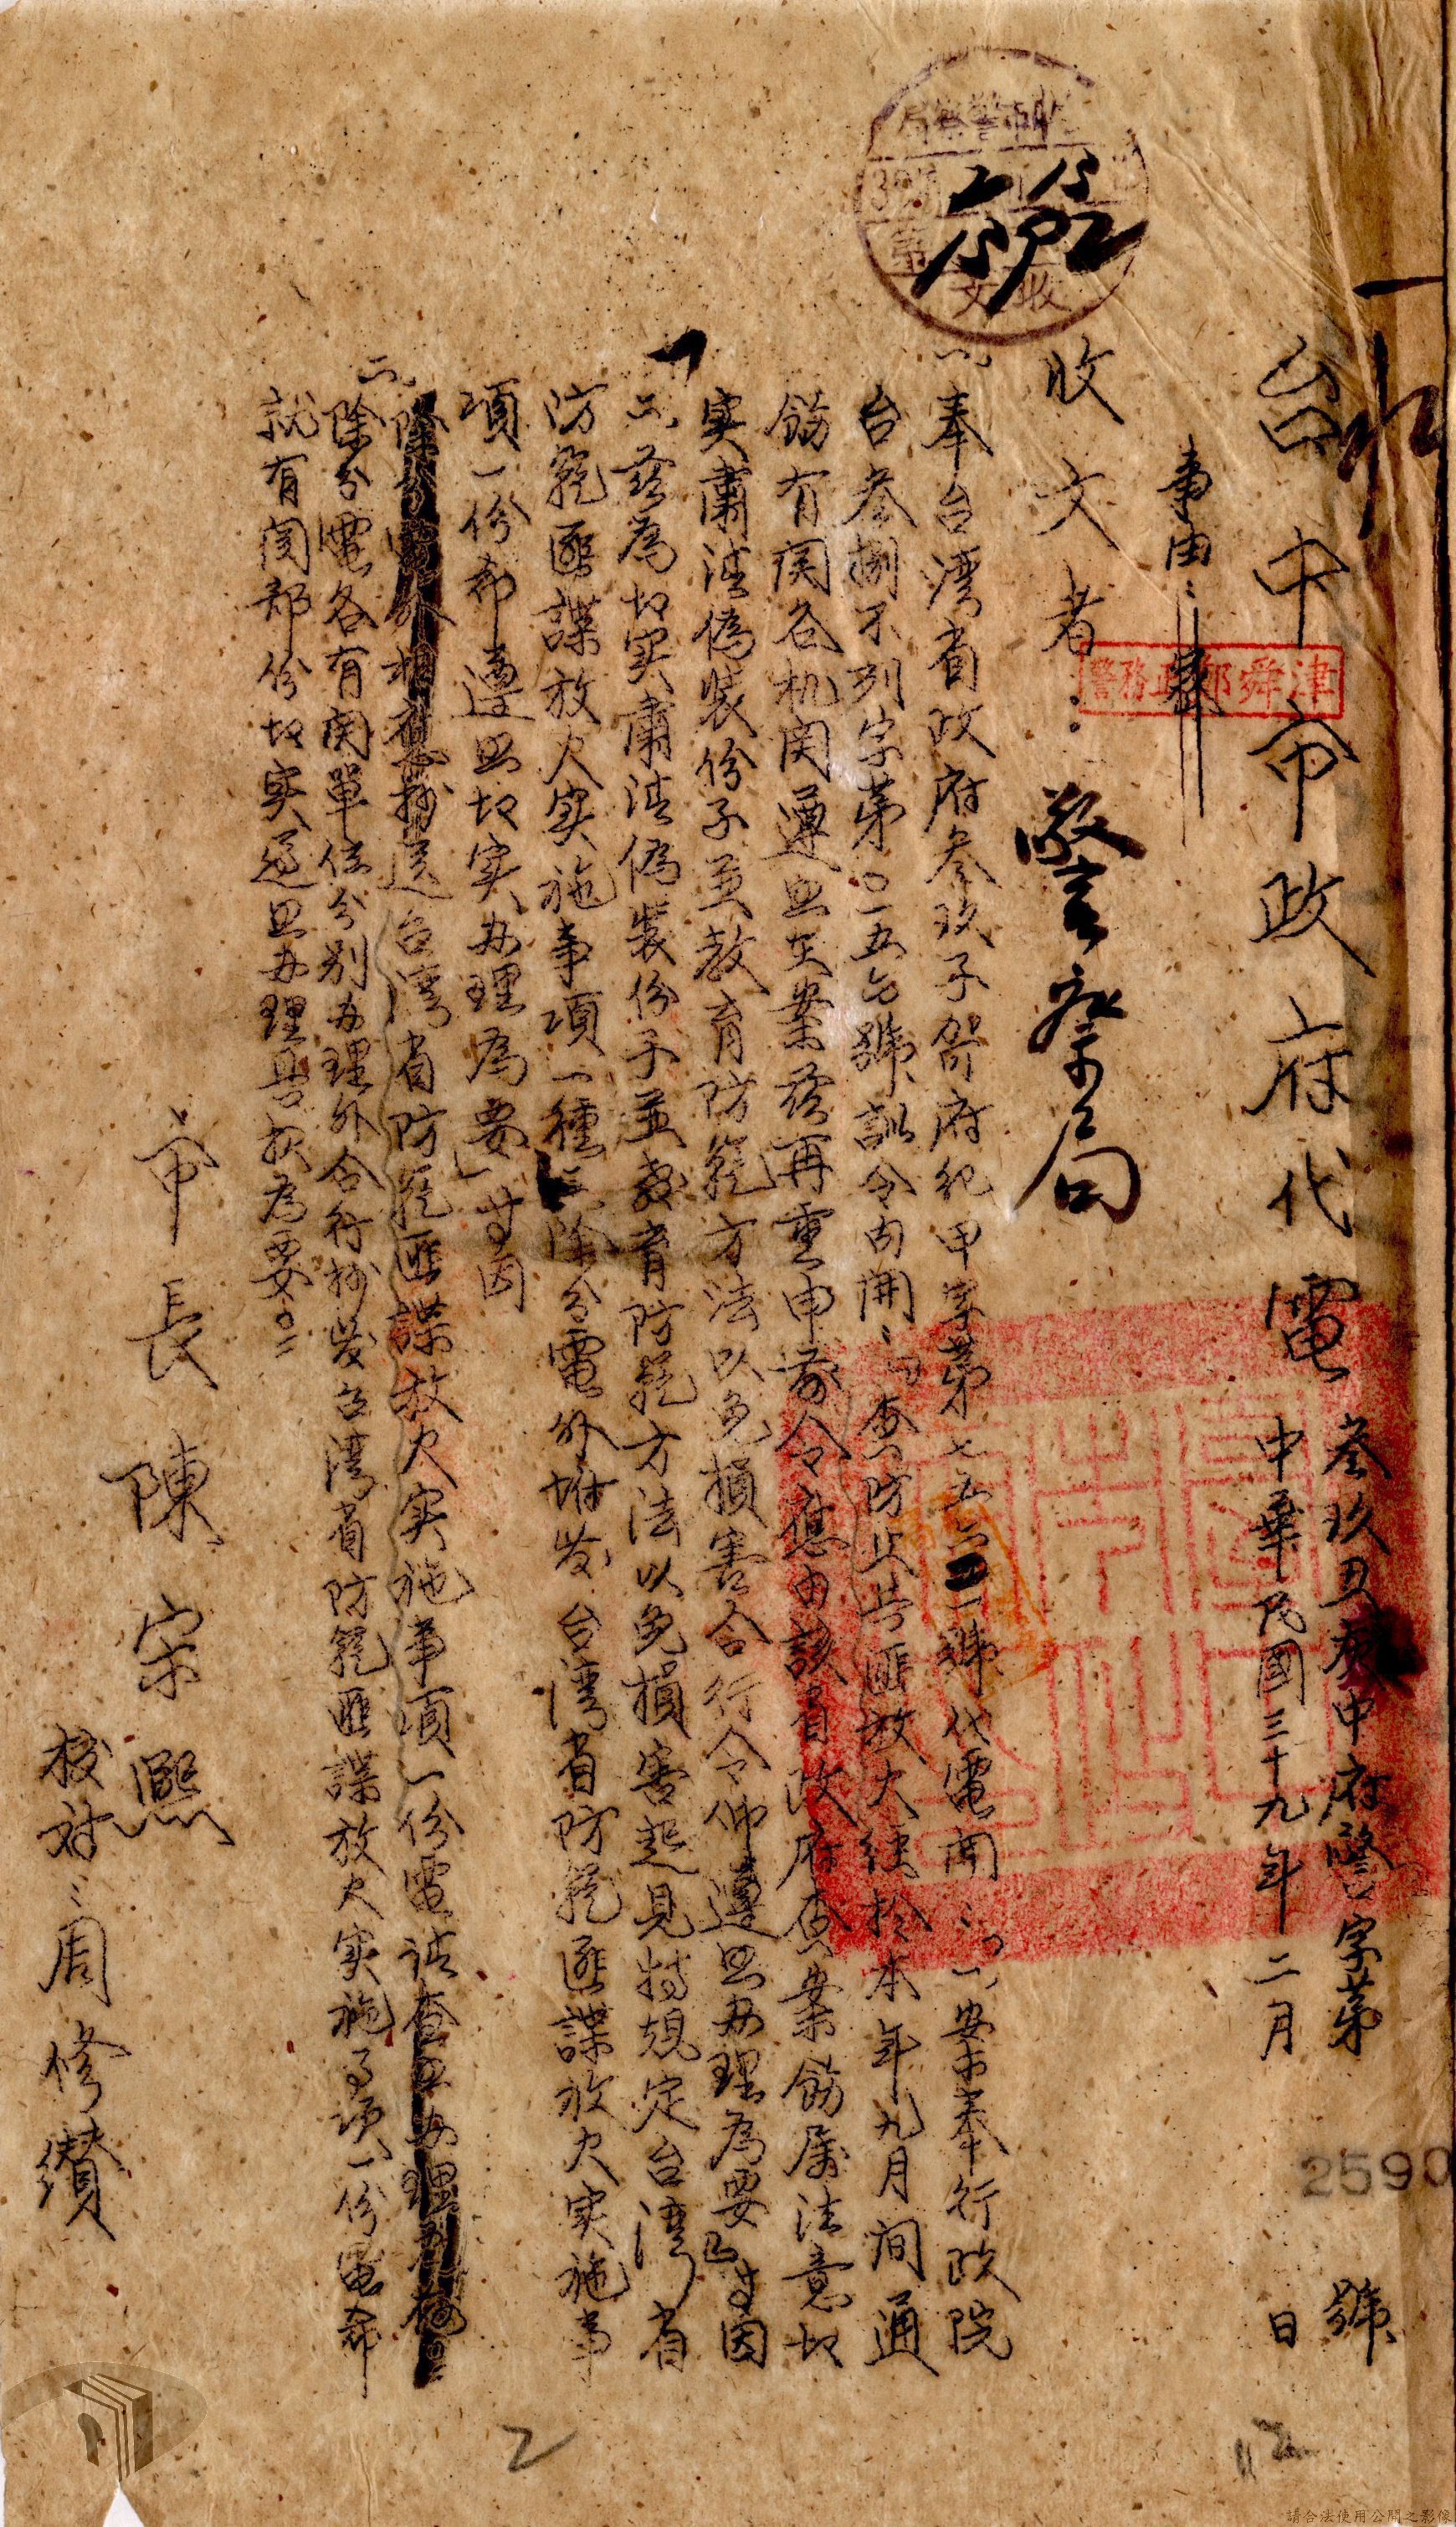 台中市政府代電
叁玖丑 中府警字第 號
中華民國三十九年二月 日
2590
事由：
警務 鄭舜津
收文者：警察局
一、奉台灣省政府叁玖子 府紀甲字第七五六四一號代電開：「(一)案奉行政院
台叁捌不列字第〇一五 號訓令內開：『查防止共匪放火經於本年九月間通
飭有関各机関遵照在案茲再重申前令應由該省政府查案飭屬注意切
实肅清偽裝份子並教育防範方法以免損害合行令仰遵照办理為要』等因
二、茲為切実肅清偽裝份子並教育防範方法以免損害起見特規定台灣省
防範匪諜放火实施事項一種三、除分電外坿发台灣省防範匪諜放火実施事
項一份希遵照切实办理為要」等因
除分電外相應抄送台灣省防範匪諜放火实施事項一份電請查照办理為荷
二、除分電各有関單位分別办理外合行抄发台灣省防範匪諜放火实施事项一份電希
就有関部份切实遵照办理具报為要
市長陳宗熙
校对：周修纘
2
12
請合法使用公開之影像